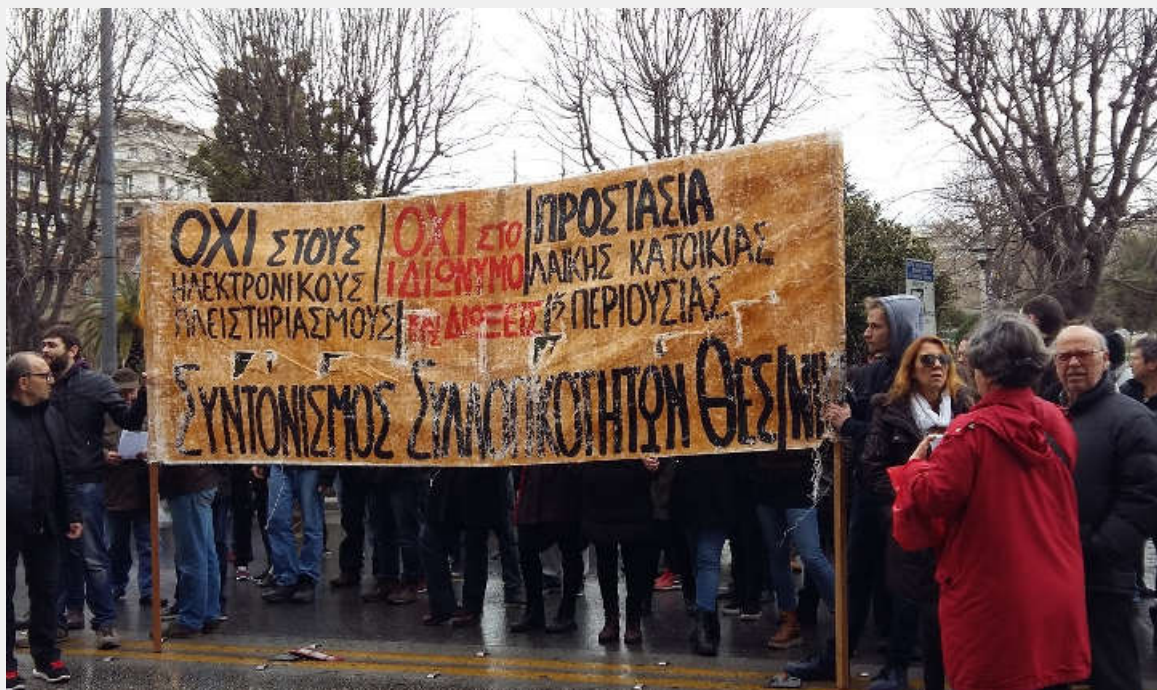 ΟΧΙ ΣΤΟΥΣ
ΗΛΕΚΤΡΟΝΙΚΟΥΣ
ΠΛΕΙΣΤΗΡΙΑΣΜΟΥΣ
ΟΧΙ ΣΤΟ
ΙΔΙΩΝΥΜΟ
ΔΙΩΞΕΙΣ
ΠΡΟΣΤΑΣΙΑ
ΛΑΪΚΗΣ ΚΑΤΟΙΚΙΑΣ
ΠΕΡΙΟΥΣΙΑΣ
ΣΥΝΤΟΝΙΣΜΟΣ ΣΥΛΛΟΓΙΚΟΤΗΤΩΝ ΘΕΣ/ΝΙΚ